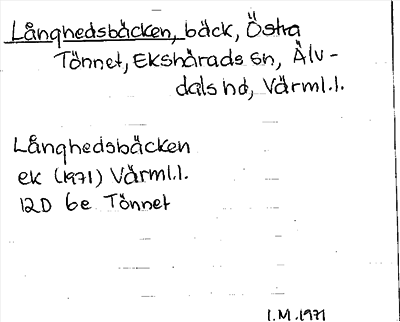 Långhedsbäcken, bäck, Östra
Tönnet, Ekshärads sn, Älv-
dals hd, Värml.l.
Långhedsbäcken
ek (1971) Värml.l.
12D 6e Tönnet
I.M.1971